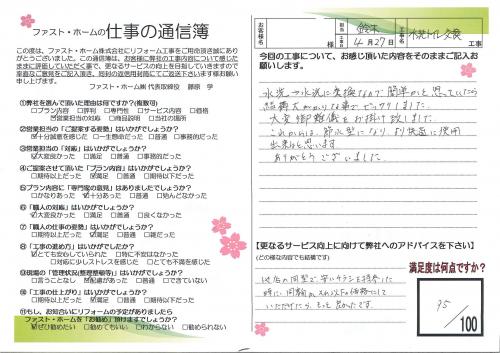 ファスト・ホームの仕事の通信簿
この度は、ファスト・ホーム株式会社にリフォーム工事をご用命頂き誠にあり
がとうございました。この通信簿は、お客様に弊社の工事内容について感じた
ままに評価していただく事で、更なるサービスの向上を目指していきますので
率直なご意見をご記入頂き、同封の返信用封筒にてご返送下さいます様お願い
申し上げます。
ファスト・ホーム㈱ 代表取締役 藤原 学
①弊社を選んで頂いた理由は何ですか?(複数可)
□プラン内容 □評判 □専門性 □サービス内容 □価格
□営業担当の対応 □商品説明 □場所 □その他
②営業担当の「ご提案する姿勢」はいかがでしょうか?
□十分誠意を感じた □一生懸命だった □普通 □事務的だった
③営業担当の「対応」はいかがでしょうか?
□大変良かった □満足 □普通 □事務的だった
④ご提案させて頂いた「プラン内容」はいかがでしょうか?
□期待以上だった □満足 □普通 □期待以下だった
⑤プラン内容に「専門家の意見」はありましたでしょうか?
□大変あった □あった □普通だった □見んどなかった
⑥「職人の対応」はいかがでしょうか?
□大変良かった □満足 □普通 □良くなかった
⑦「職人の仕事の姿勢」はいかがでしょうか?
□期待以上だった □満足 □普通 □雑だった
⑧「工事の進め方」はいかがでしたか?
□とても安心していられた □特に不安はなかった
□対応に少しストレスを感じた □とても不満を感じた
⑨現場の「管理状況(整理整頓等)」はいかがでしたか?
□言うことなし □配慮があった □普通 □できていない
⑩「工事の仕上がり」はいかがでしたか?
□期待以上だった □満足 □普通 □期待以下だった
⑪もし、お知合いにリフォームの予定がありましたら
ファスト・ホームを「お勧め」頂けますでしょうか?
□ぜひ勧めたい □勧めてもいい □わからない □勧められない
お客様名
様
担当
鈴木
工事日
4月27日
工事名
工事
今回の工事について、お感じ頂いた内容をそのままご記入お
願いします。
水洗→水洗に交換なので簡単かと思っていたら
結構大がかりな事でビックリしました。
大変御難儀をお掛け致しました
これからは、節水型になり、より快適に使用
出来ると思います
ありがとうございました。
【更なるサービス向上に向けて弊社へのアドバイスを下さい】
(どの様な内容でも結構です)
他店の同型で安いチラシを持参した
時に、同額か、それ以下の価格にして
いただけたら、もっと良かったです。
満足度は何点ですか?
95
/100